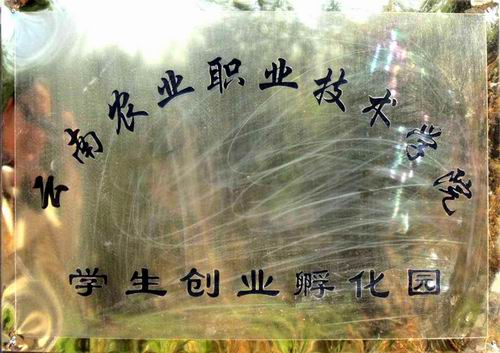 云南农业职业技术学院
学生创业孵化园